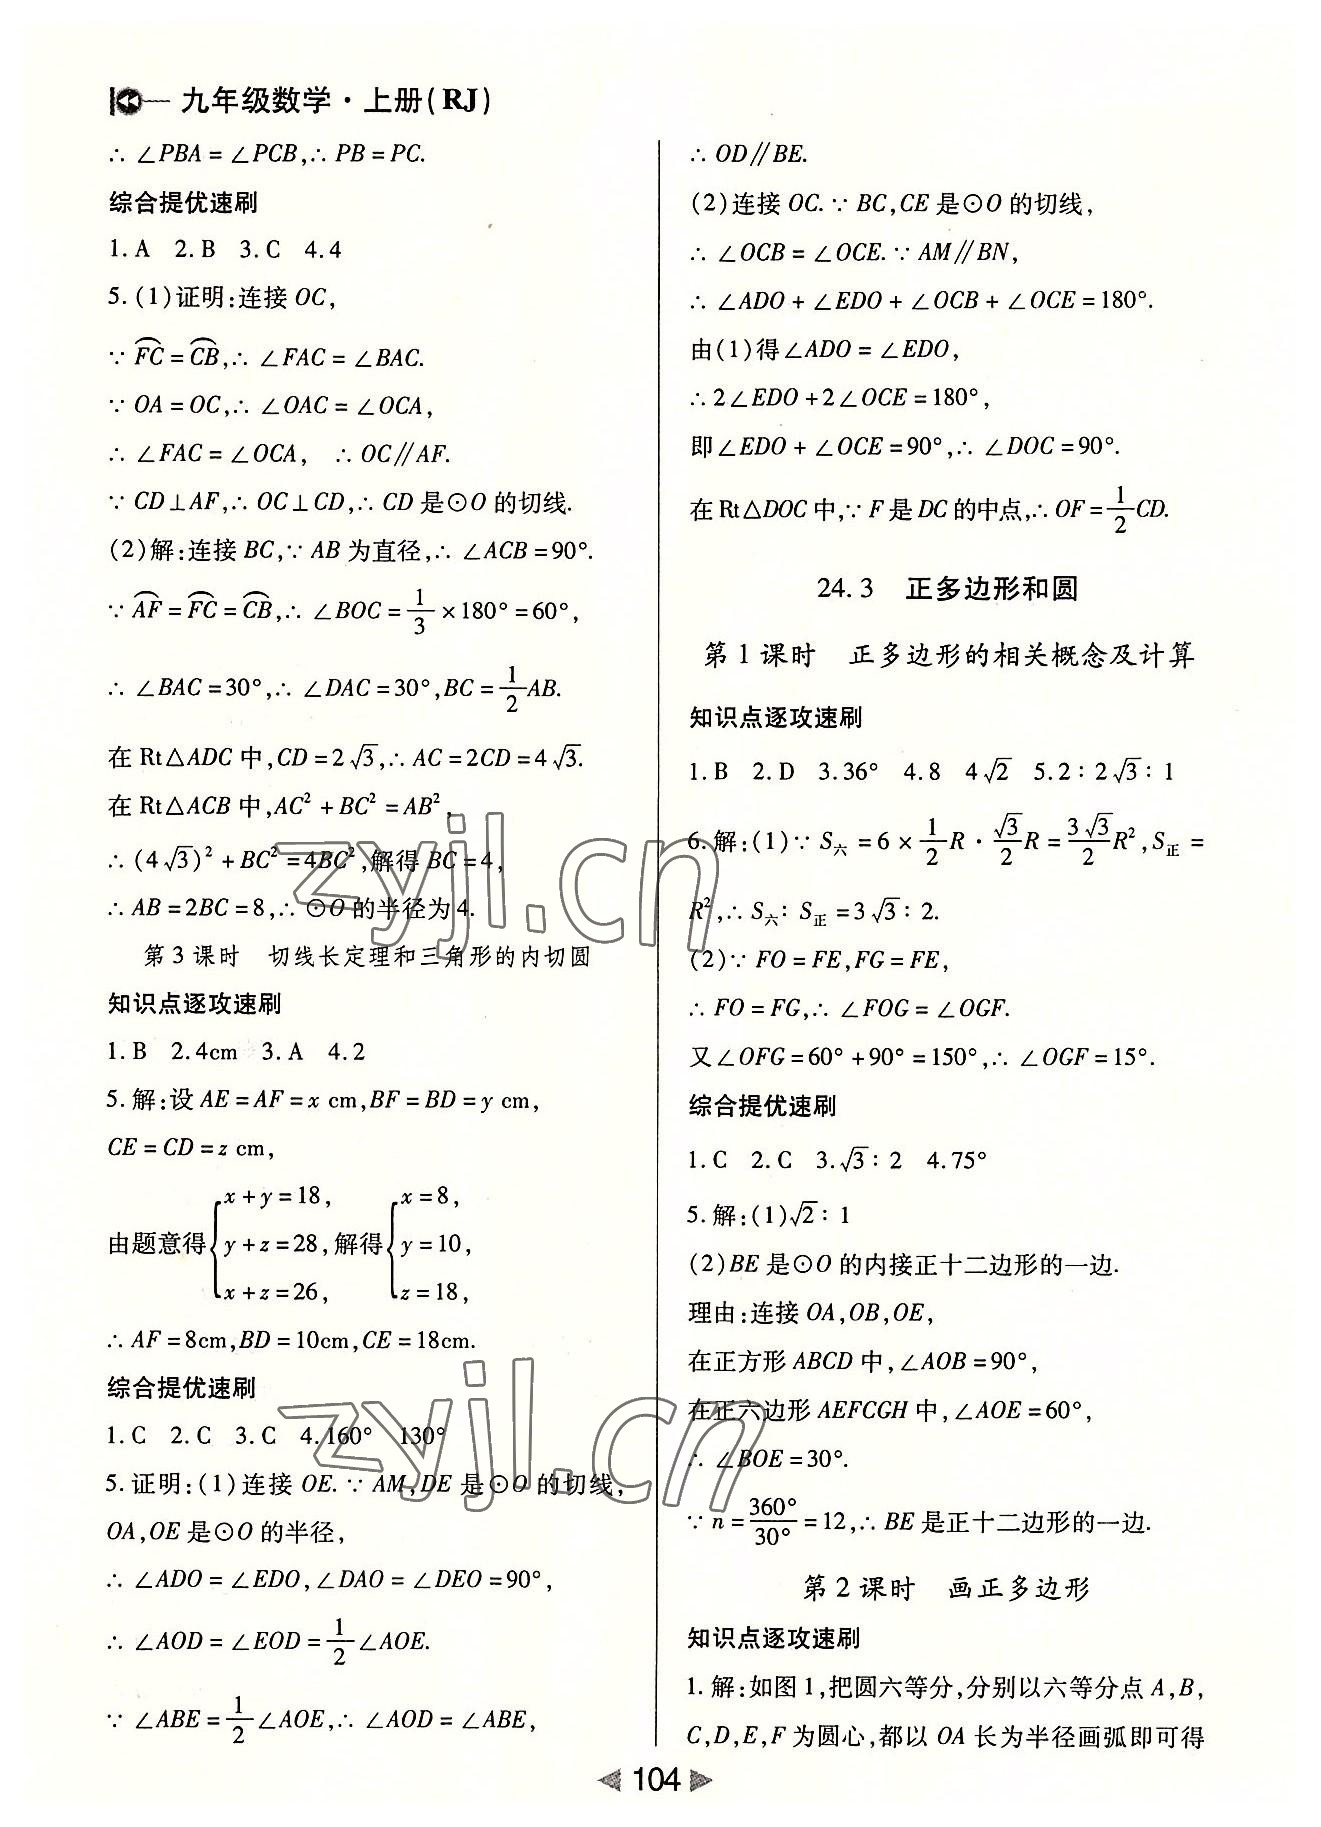 九年级数学·上册(RJ)
∴ ∠PBA = ∠PCB,∴ PB = PC.
综合提优速刷
1. A 2. B 3. C 4. 4
5. (1)证明:连接 OC,
∵ F͡C = C͡B,∴ ∠FAC = ∠BAC.
∵ OA = OC,∴ ∠OAC = ∠OCA,
∴ ∠FAC = ∠OCA, ∴ OC∥AF.
∵ CD⊥AF,∴ OC⊥CD,∴ CD 是⊙O 的切线.
(2)解:连接 BC,∵ AB 为直径,∴ ∠ACB = 90°.
∵ A͡F = F͡C = C͡B,∴ ∠BOC = 1/3 × 180° = 60°,
∴ ∠BAC = 30°,∴ ∠DAC = 30°,BC = 1/2 AB.
在 Rt△ADC 中,CD = 2√3,∴ AC = 2CD = 4√3.
在 Rt△ACB 中,AC² + BC² = AB²,
∴ (4√3)² + BC² = 4BC²,解得 BC = 4,
∴ AB = 2BC = 8,∴ ⊙O 的半径为 4.
第 3 课时 切线长定理和三角形的内切圆
知识点逐攻速刷
1. B 2. 4cm 3. A 4. 2
5. 解:设 AE = AF = x cm,BF = BD = y cm,
CE = CD = z cm,
由题意得{x + y = 18, y + z = 28, x + z = 26, 解得{x = 8, y = 10, z = 18,
∴ AF = 8cm,BD = 10cm,CE = 18cm.
综合提优速刷
1. C 2. C 3. C 4. 160° 130°
5. 证明:(1)连接 OE. ∵ AM,DE 是⊙O 的切线,
OA,OE 是⊙O 的半径,
∴ ∠ADO = ∠EDO,∠DAO = ∠DEO = 90°,
∴ ∠AOD = ∠EOD = 1/2 ∠AOE.
∵ ∠ABE = 1/2 ∠AOE,∴ ∠AOD = ∠ABE,
∴ OD∥BE.
(2)连接 OC. ∵ BC,CE 是⊙O 的切线,
∴ ∠OCB = ∠OCE. ∵ AM∥BN,
∴ ∠ADO + ∠EDO + ∠OCB + ∠OCE = 180°.
由(1)得∠ADO = ∠EDO,
∴ 2∠EDO + 2∠OCE = 180°,
即∠EDO + ∠OCE = 90°,∴ ∠DOC = 90°.
在 Rt△DOC 中,∵ F 是 DC 的中点,∴ OF = 1/2 CD.
24.3 正多边形和圆
第 1 课时 正多边形的相关概念及计算
知识点逐攻速刷
1. B 2. D 3. 36° 4. 8 4√2 5. 2∶2√3∶1
6. 解:(1)∵ S六 = 6 × 1/2 R · √3/2 R = 3√3/2 R²,S正 =
R²,∴ S六∶S正 = 3√3∶2.
(2)∵ FO = FE,FG = FE,
∴ FO = FG,∴ ∠FOG = ∠OGF.
又∠OFG = 60° + 90° = 150°,∴ ∠OGF = 15°.
综合提优速刷
1. C 2. C 3. √3∶2 4. 75°
5. 解:(1)√2∶1
(2)BE 是⊙O 的内接正十二边形的一边.
理由:连接 OA,OB,OE,
在正方形 ABCD 中,∠AOB = 90°,
在正六边形 AEFCGH 中,∠AOE = 60°,
∴ ∠BOE = 30°.
∵ n = 360°/30° = 12,∴ BE 是正十二边形的一边.
第 2 课时 画正多边形
知识点逐攻速刷
1. 解:如图 1,把圆六等分,分别以六等分点 A,B,
C,D,E,F 为圆心,都以 OA 长为半径画弧即可得
104
zyjl.cn
zyjl.cn